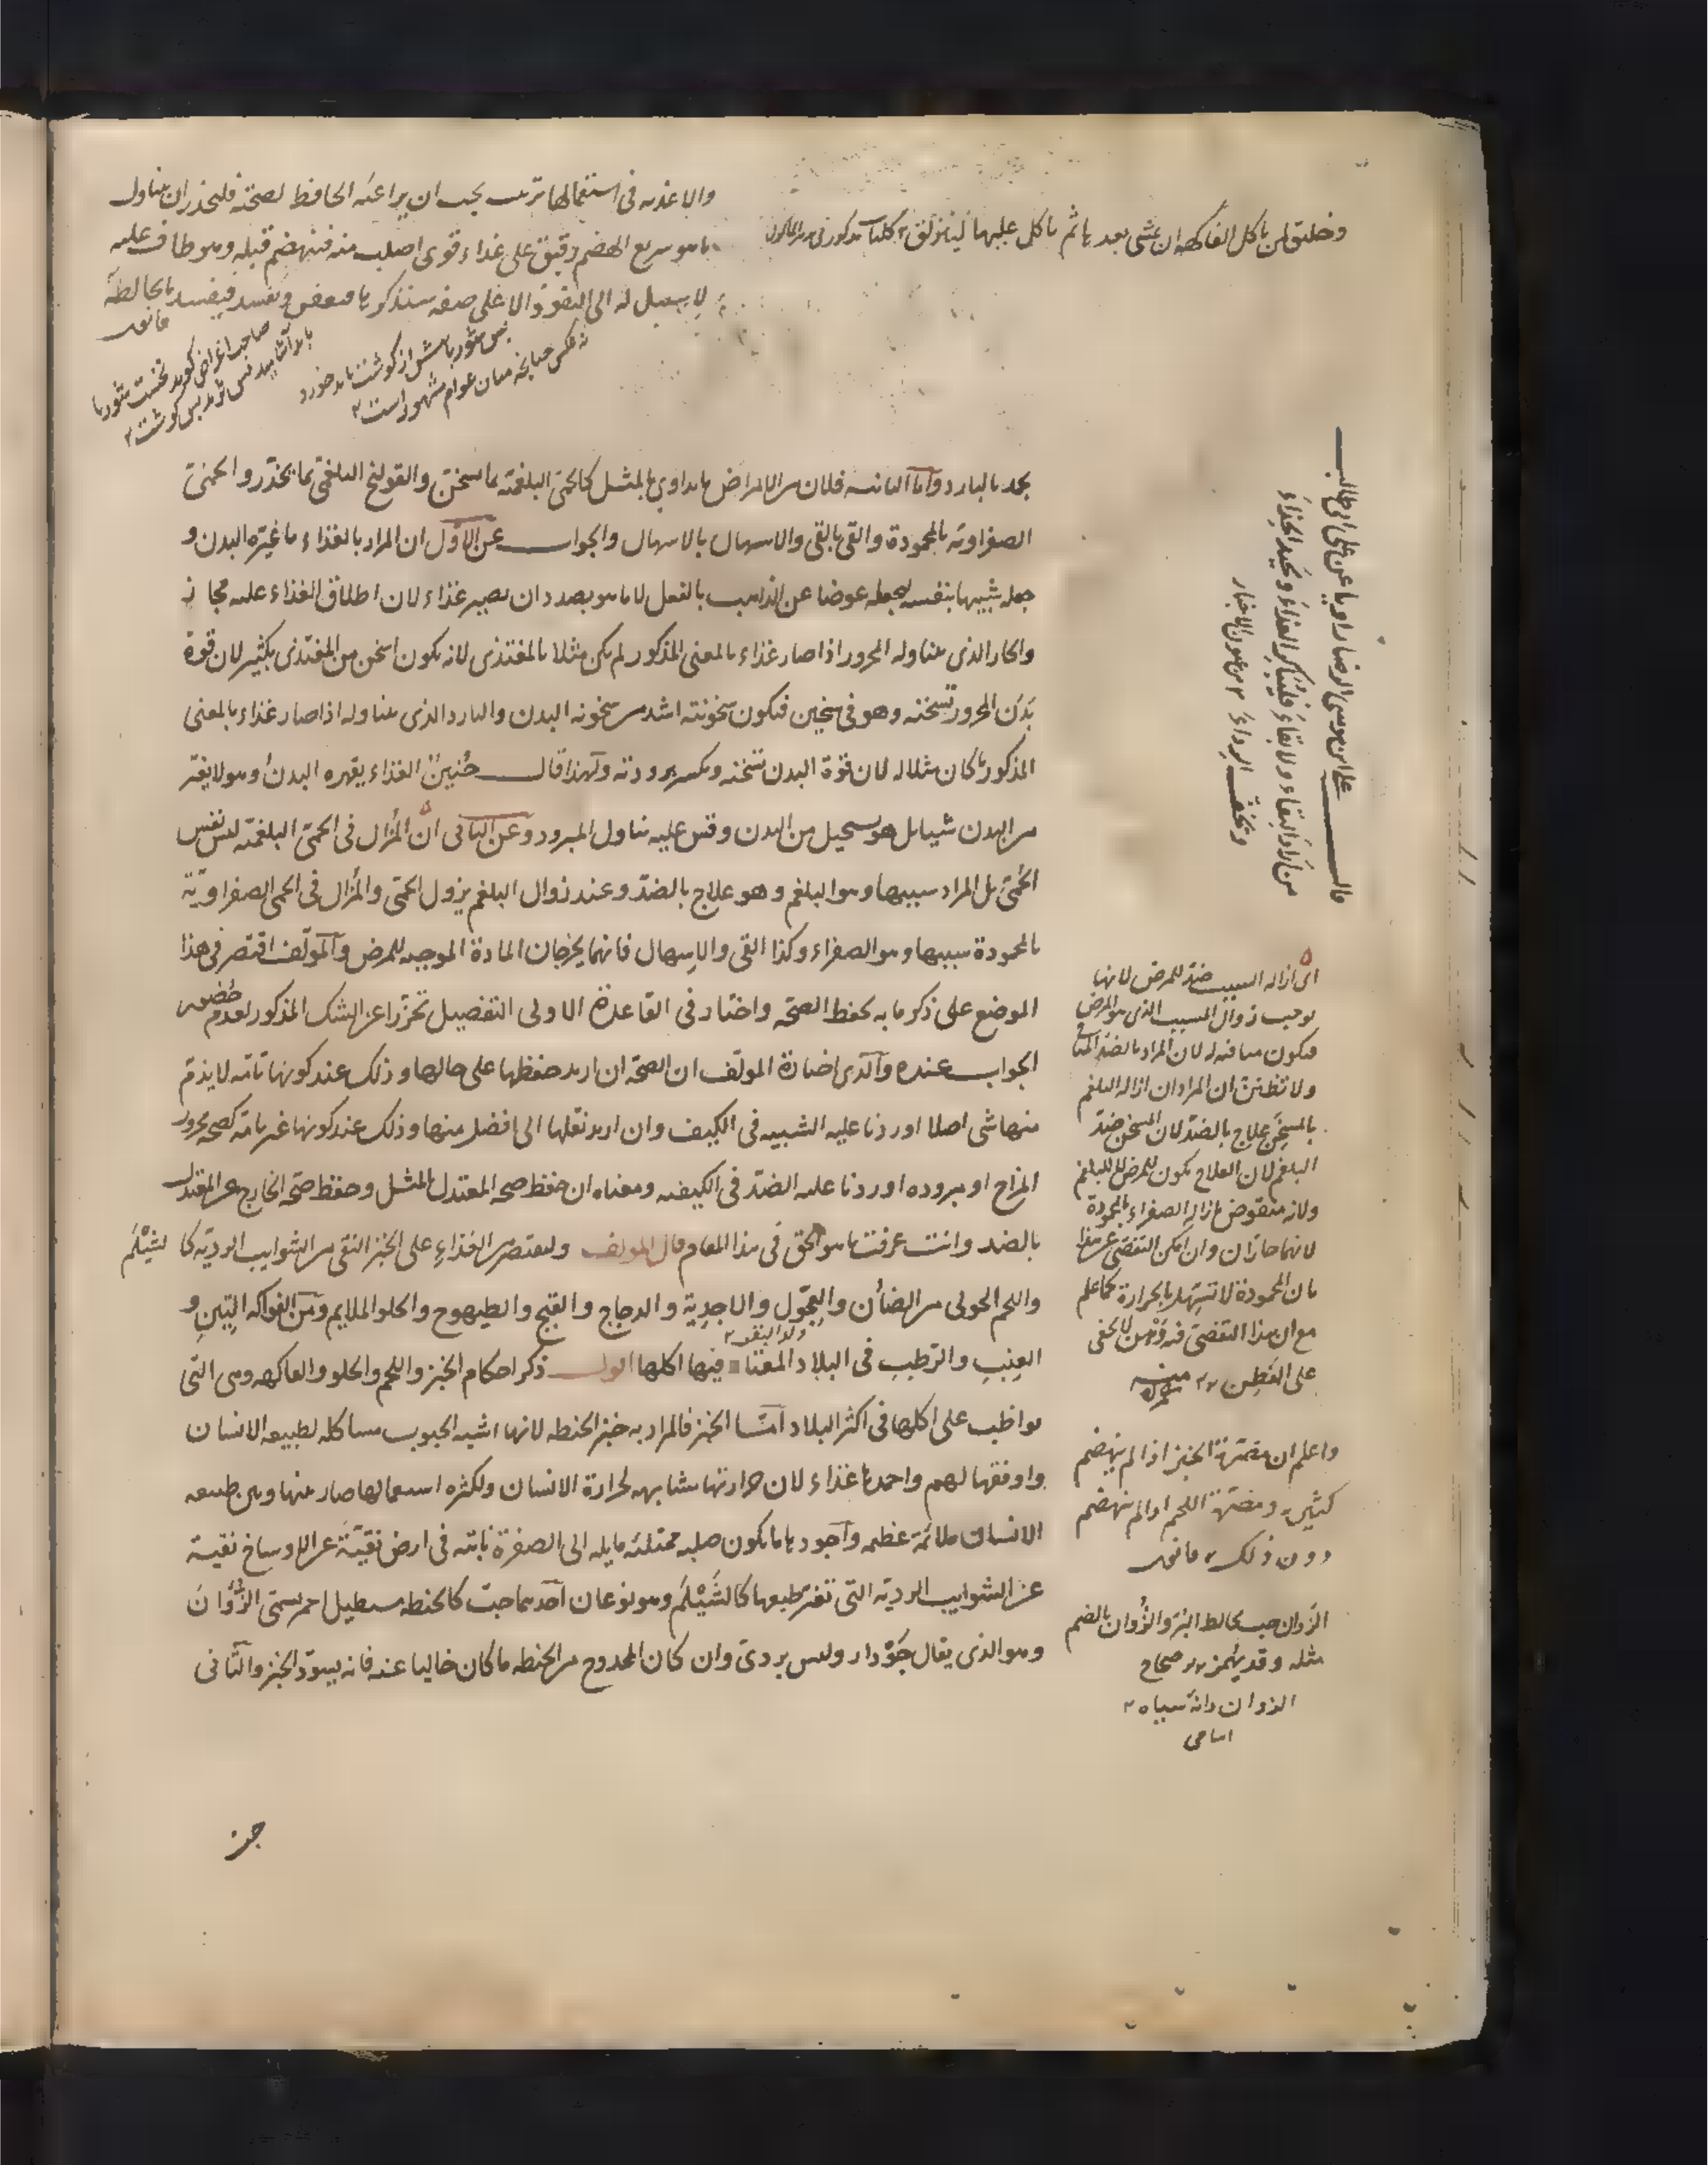 والاغذيه فى استعمالها ترتيب يجب ان يراعيه الحافظ لصحته فليحذر ان يتناول
ما هو سريع الهضم رقيق على غذاء قوى اصلب منه فينهضم قبله وهو طاف عليه
لا سبيل له الى النفوذ الا على صفه سنذكرها فيعفن ويفسد فيفسد ما يخالطه
قانون
وخليق لمن ياكل الفاكهه ان يمشى بعدها ثم ياكل عليها ليزلق
صاحب اغراض كويد نخست شوربا
بايد آشاميد پس ثريد پس كوشت
پس شوربا پيش از كوشت بايد خورد
نه عكس چنانچه ميان عوام مشهور است
يحد بالبارد واما الثانيه فلان من الامراض ما يداوى بالمثل كالحمى البلغميه بما يسخن والقولنج البلغمى بما يخدر والحمى
الصفراويه بالمحمودة والقى بالقى والاسهال بالاسهال والجواب عن الاول ان المراد بالغذاء ما غيّره البدن و
جعله شبيها بنفسه ليجعله عوضا عن الذاهب بالفعل لا ما هو بصدد ان يصير غذاء لان اطلاق الغذاء عليه مجاز
والحار الذى يتناوله المحرور اذا صار غذاء بالمعنى المذكور لم يكن مثلا بالمغتذى لانه يكون اسخن من المغتذى بكثير لان قوة
بدن المحرور تسخنه وهو فى سخين فيكون سخونته اشد من سخونه البدن والبارد الذى يتناوله اذا صار غذاء بالمعنى
المذكور كان مثلا له لان قوة البدن تسخنه ويكسر برودته ولهذا قال حُنين الغذاء يقهره البدن وهو لا يغير
من البدن شيا بل هو يستحيل من البدن وقس عليه تناول المبرود وعن الثانى ان المُزال فى الحمى البلغميه ليس نفس
الحمى بل المراد سببها وهو البلغم وهو علاج بالضد وعند زوال البلغم يزول الحمى والمُزال فى الحمى الصفراويّة
بالمحمودة سببها وهو الصفراء وكذا القى والاسهال فانهما يخرجان المادة الموجبه للمرض والمولف اقتصر فى هذا
الموضع على ذكر ما به يحفظ الصحه واختار فى القاعدة الاولى التفصيل تحرزا عن الشك المذكور لعدم حضور
الجواب عنده والذى اختاره المولف ان الصحه ان اريد حفظها على حالها وذلك عند كونها تامه لا يذم
منها شى اصلا اوردنا عليه الشبيه فى الكيف وان اريد نقلها الى افضل منها وذلك عند كونها غير تامه كصحه محرور
المزاج او مبروده اوردنا عليه الضد فى الكيفيه ومعناه ان حفظ صحه المعتدل بالمثل وحفظ صحه الخارج عن المعتدل
بالضد وانت عرفت ما هو الحق فى هذا المقام قال المولف وليقتصر من الغذاء على الخبز النقى من الشوايب الرديّه كا لشيْلَم
واللحم الحولى من الضأن والعِجَّول والاجدِية والدجاج والقبج والطيهوج والحلو الملايم ومن الفواكه التِين و
ولد البقر
العِنبِ والرّطبِ فى البلاد المعتاد فيها اكلها اقول ذكر احكام الخبز واللحم والحلو والفاكهه وهى التى
يواظب على اكلها فى اكثر البلاد امّا الخبز فالمراد به خبز الحنطه لانها اشبه الحبوب مشاكله لطبيعه الانسان
واوفقها لهم واحمدها غذاء لان حرارتها مشابهه لحرارة الانسان ولكثره استعمالها صار بينها وبين طبيعه
الانسان ملائمة عظيمه واجودها ما يكون صلبه ممتلئه مايله الى الصفرة نابته فى ارض نقيّة عن الاوساخ نقيه
عن الشوايب الرديه التى تغير طبعها كالشَيْلَم وهو نوعان احدهما حبّ كالحنطه مستطيل احمر يسمى الزُؤان
وهو الذى يقال جَوْدار وليس بردىّ وان كان الممدوح من الحنطه ما كان خاليا عنه فانه يسوّد الخبز والثانى
قال علىّ بن موسى الرضا راويا عن على ابن ابى طالب
من اراد البقاء ولا بقاء فليباكر الغذاء وليجيد الحذاء
وليخفف الرداء من عيون الاخبار
اى ازاله السبب ضد للمرض لانها
يوجب زوال المسبب الذى هو المرض
فيكون منافيه له لان المراد بالضد المنافى
ولا تظنّنّ ان المراد ان ازاله البلغم
بالمسخن علاج بالضد لان المسخن ضد
البلغم لان العلاج يكون للمرض لا للبلغم
ولانه منقوض بازاله الصفراء بالمحمودة
لانهما حارّان وان امكن التفصّى عن هذا
بان المحمودة لا تسهل بالحرارة كما علم
مع ان هذا التفصى فيه وهن لا يخفى
على الفَطِن منه
واعلم ان مضرة الخبز اذا لم ينهضم
كثيرة ومضرة اللحم اذا لم ينهضم
دون ذلك قانون
الزوان حب يخالط البُرّ والزُوان بالضم
مثله وقد يُهمز صحاح
الزوان دانه سياه
اسامى